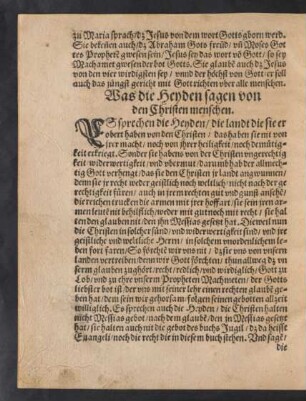 zu Maria sprach/dz Jesus von dem wort Gotts gborn werd.
Sie bekeñen auch/dz Abraham Gots freüd/vñ Moses Got
tes Prophet gwesen sein/Jesus sey das wort võ Gott/so sey
Machamet gwesen der bot Gotts. Sie glaubē auch dz Jesus
von den vier wirdigsten sey/vnnd der höchst von Gott er soll
auch das jüngst gericht mit Gott richten über alle menschen.
Was die Heyden sagen von
den Christen menschen.
ES sprechen die Heyden/die landt die sie er
obert haben von den Christen/das haben sie nit von
jrer macht/noch von jhrer heiligkeit/noch demütig
keit erkriegt. Sonder sie haben von der Christen vngerechtig
keit widerwertigkeit/vñ übermut/darumb hat der allmech
tig Gott verhengt/das sie den Christen jr landt angwunnen/
denn sie jr recht weder geistlich noch weltlich/nicht nach der ge
rechtigkeit füren/auch in jren rechten gut vnd gunst ansehē/
die reichen trucken die armen mit jrer hoffart/sie sein jren ar-
men leüten nit behilflich/weder mit gut noch mit recht/sie hal
ten den glauben nit den jhn Messias gesetzt hat. Dieweil nun
die Christen in solcher sünd/vnd widerwertigkeit sind/vnd jre
geistliche vnd weltliche Herrn/in solchem vnordenlichem le-
ben fort faren/So förchtē wir vns nit/dz sie vns von vnsern
landen vertreiben/denn wir Gott förchten/thun allweg dz vn
serm glauben zughört/recht/redlich/vnd wirdiglich/Gott zu
Lob/vnd zu ehre vnserm Propheten Machmeten/der Gottes
liebster bot ist/der vns mit seiner lehr einen rechten glaubē ge-
ben hat/dem sein wir gehorsam/folgen seinen gebotten allzeit
williglich. Es sprechen auch die Heyden/die Christen halten
nicht Messias gebot/nach dem glaubē/den in Messias gesetzt
hat/sie halten auch nit die gebot des buchs Jngil/dz da heisst
Euangeli/noch die recht die in diesem buch stehen. Vnd sagē/
die